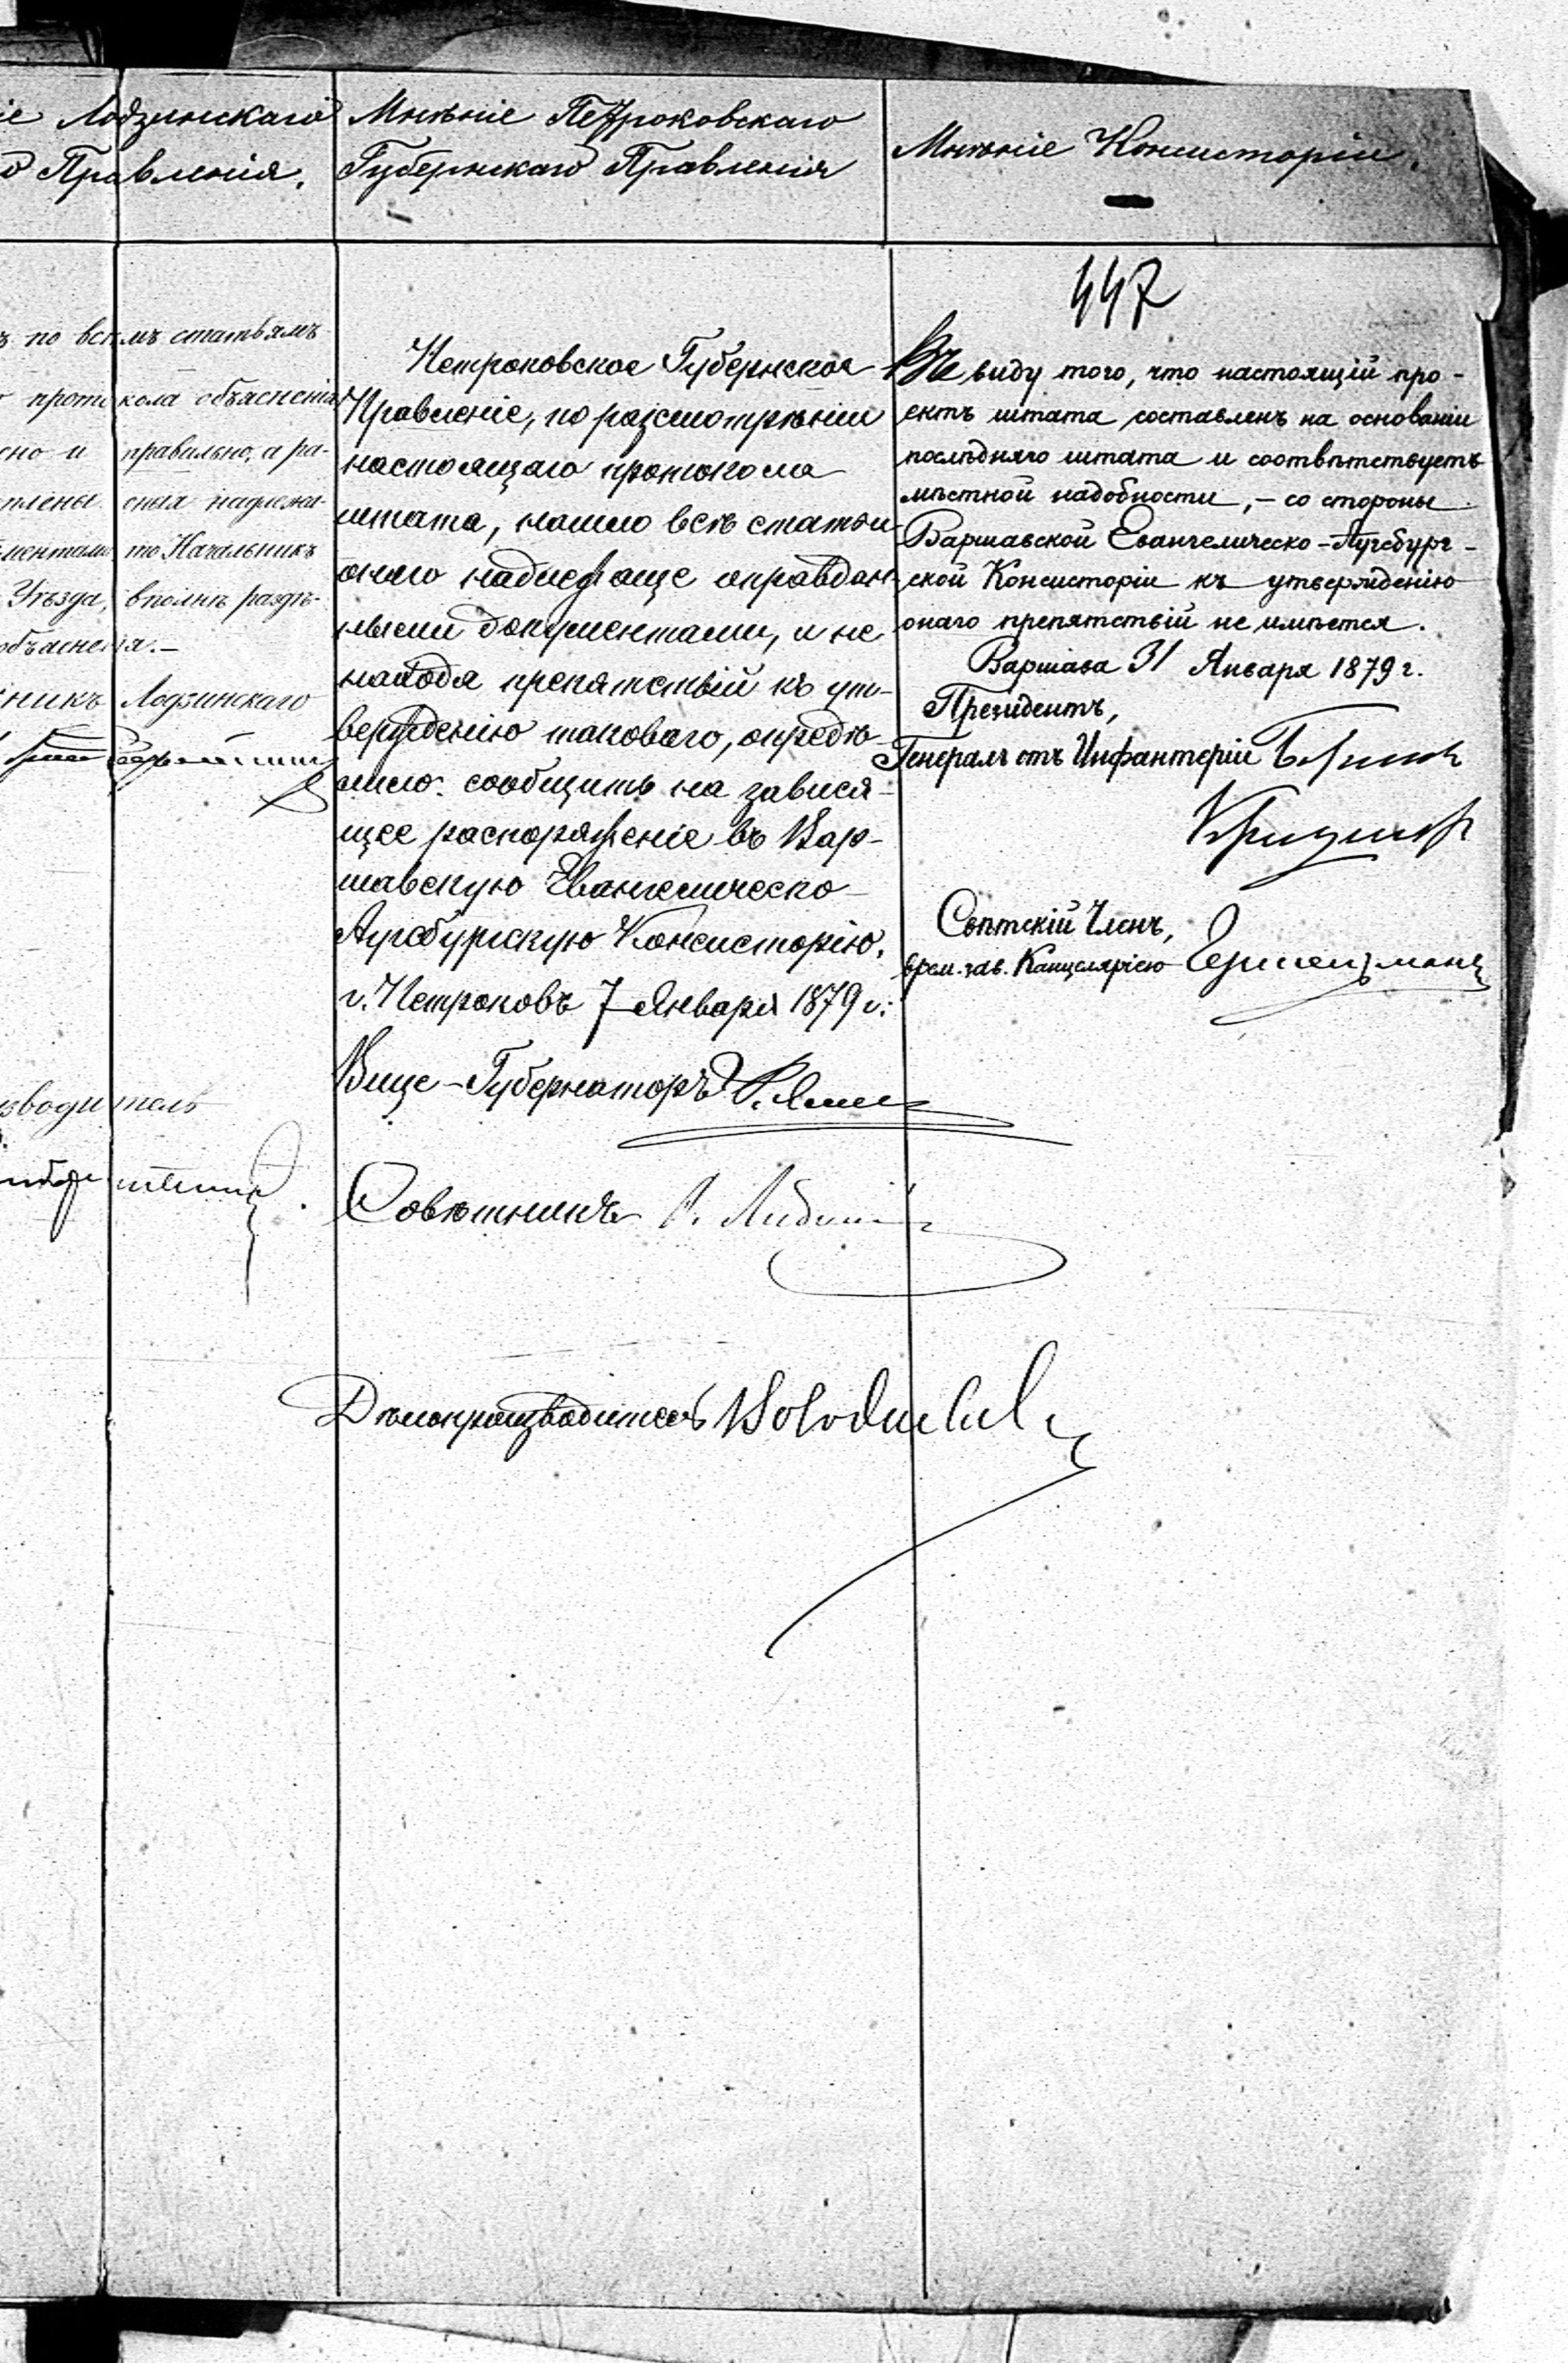 іе Лодзинскаго
Правленія.
Мнѣніе Петроковскаго
Губернскаго Правленія
Мнѣніе Консисторіи.
447
по всѣмъ статьямъ
протокола объясненія
сно и правильно, а ра-
оныя надлежа-
ментами, то Начальникъ
Уѣзда, вполнѣ раздѣ-
объясненія.—
никъ Лодзинскаго
зводитель
Петроковское Губернское
Правленіе, по разсмотрѣніи
настоящаго протокола
штата, нашло всѣ статьи
онаго надлежаще оправдан-
ными документами, и не
находя препятствій къ ут-
вержденію таковаго, опредѣ-
лило: сообщить на завися-
щее распоряженіе въ Вар-
шавскую Евангелическо-
Аугсбургскую Консисторію.
г. Петроковъ 7 Января 1879 г.
Вице-Губернаторъ
Совѣтникъ
Дѣлопроизводитель
Въ виду того, что настоящій про-
ектъ штата составленъ на основаніи
послѣдняго штата и соотвѣтствуетъ
мѣстной надобности, — со стороны
Варшавской Евангелическо-Аугсбург-
ской Консисторіи къ утвержденію
онаго препятствій не имѣется.
Варшава 31 Января 1879 г.
Президентъ,
Генералъ отъ Инфантеріи
Свѣтскій Членъ,
врем. зав. Канцеляріею